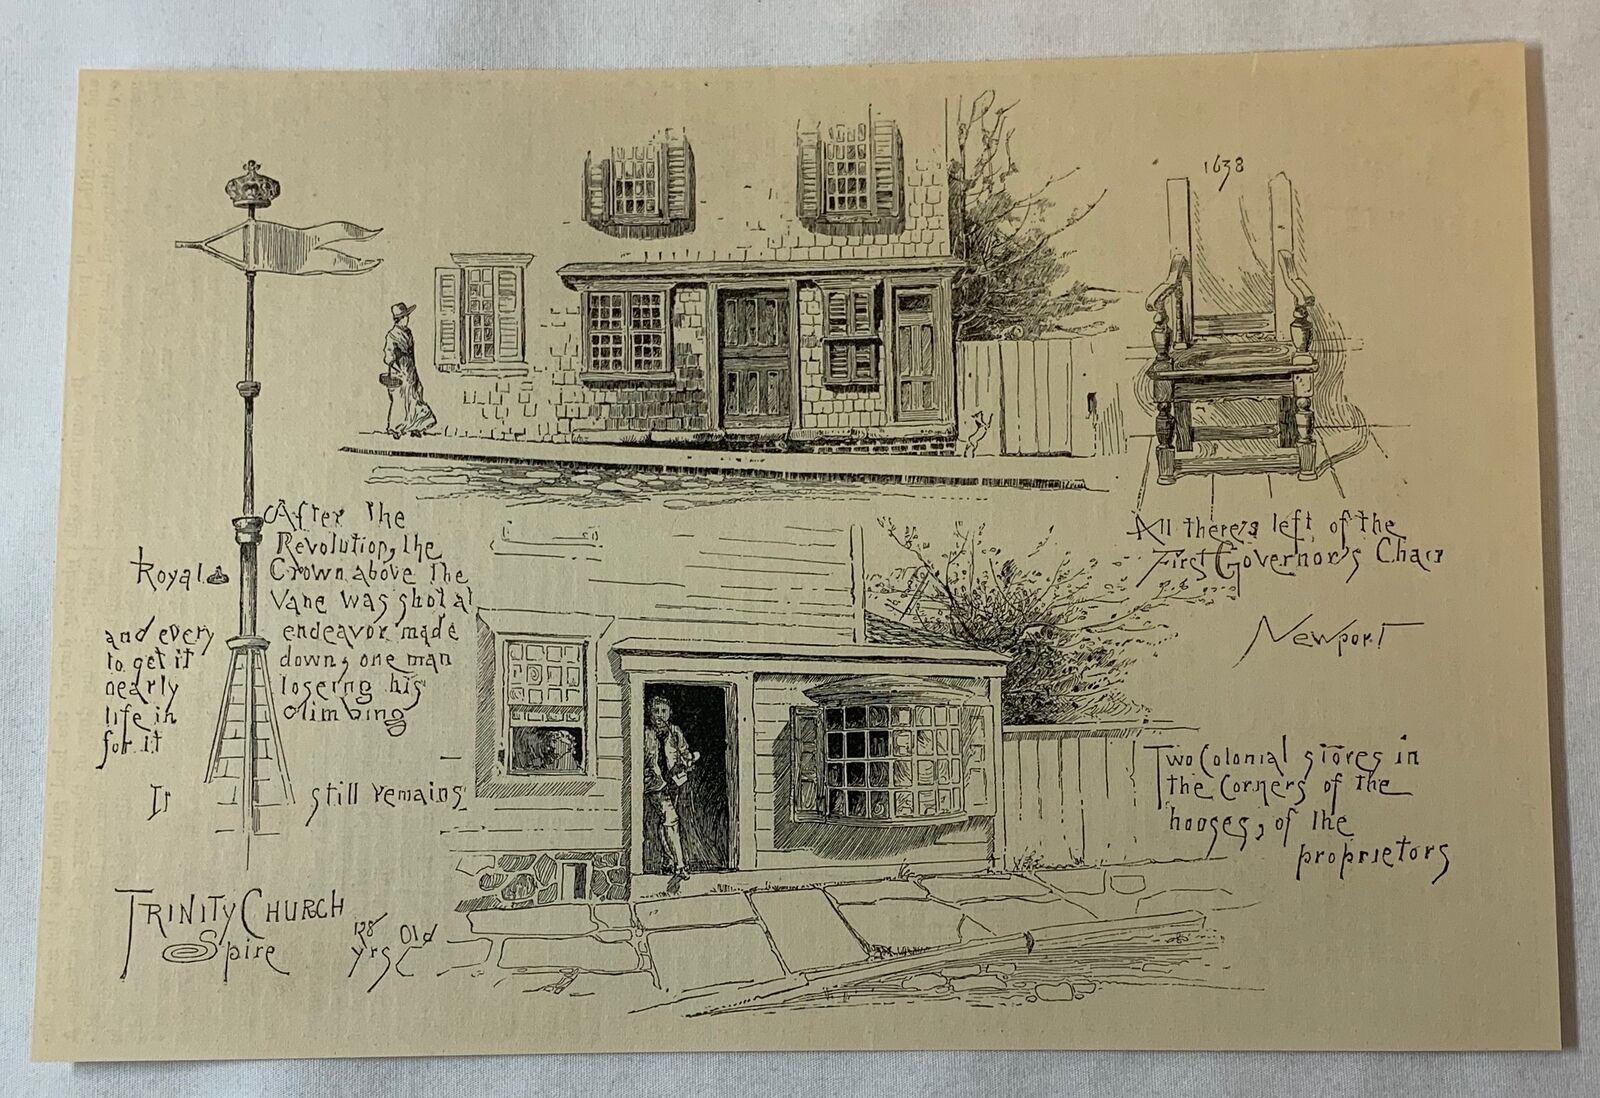 1638
After the
Revolution, the
Royal Crown above the
Vane was shot at
and every endeavor made
to get it down, one man
nearly loseing his
life in climbing
for it
It still remains
TRINITY CHURCH
Spire
128 yrs Old
All there's left of the
First Governor's Chair
Newport
Two Colonial stores in
the Corners of the
houses, of the
proprietors